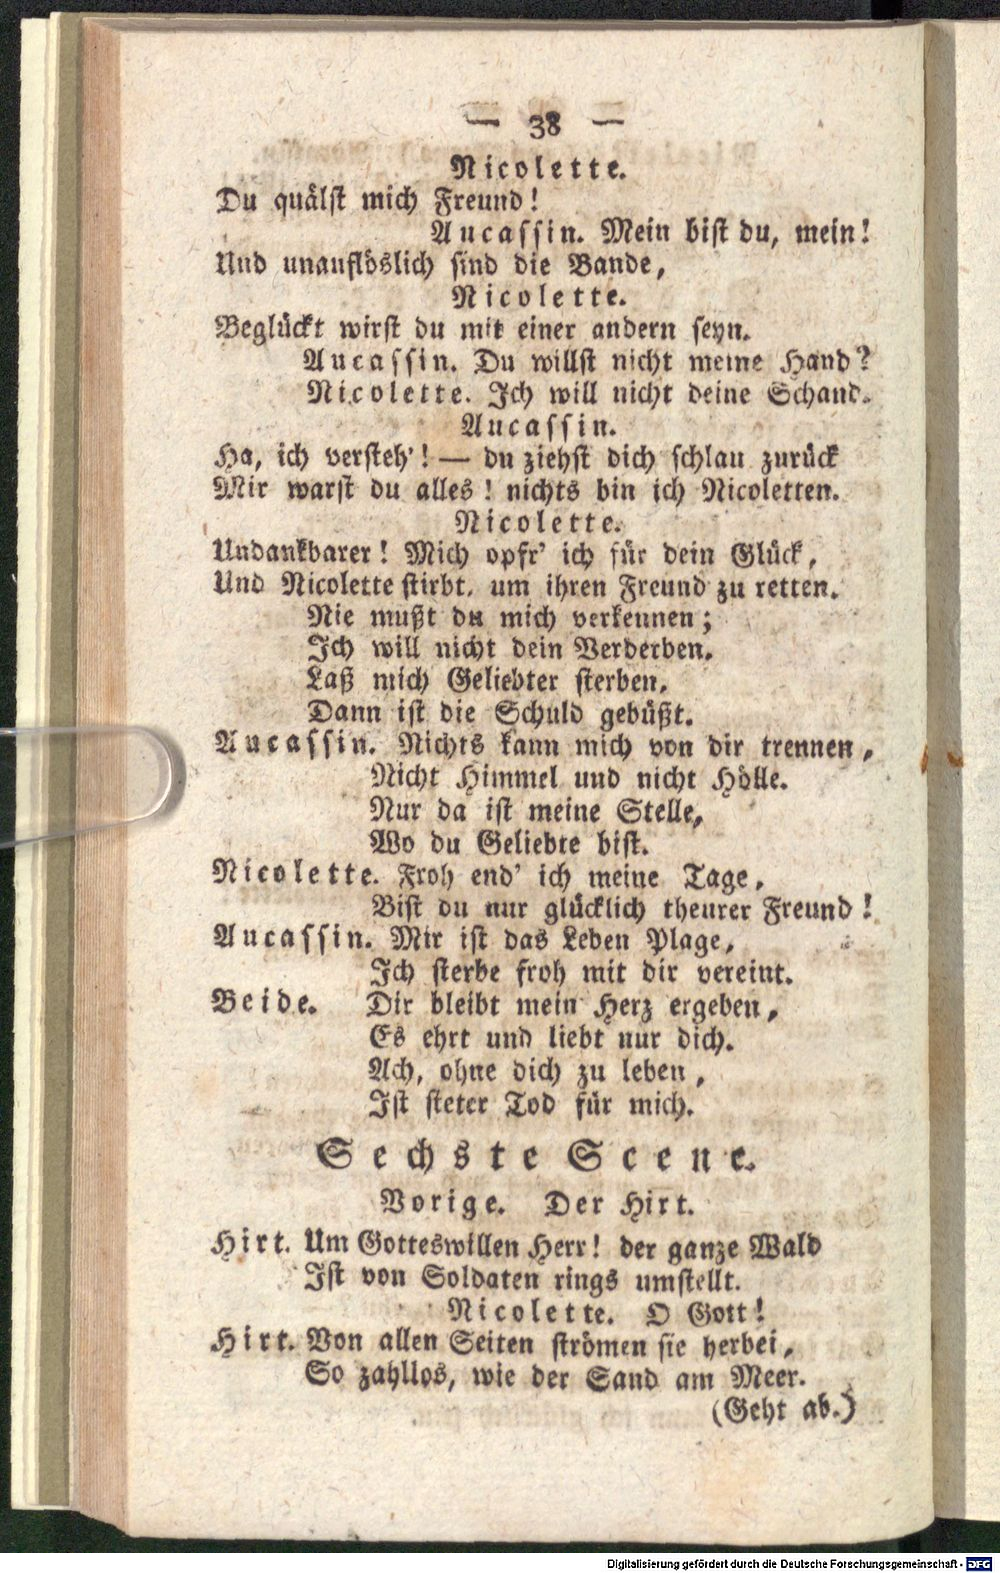 — 38 —
Nicolette.
Du quälst mich Freund!
Aucassin. Mein bist du, mein!
Und unauflöslich sind die Bande,
Nicolette.
Beglückt wirst du mit einer andern seyn.
Aucassin. Du willst nicht meine Hand?
Nicolette. Ich will nicht deine Schand.
Aucassin.
Ha, ich versteh'! — du ziehst dich schlau zurück
Mir warst du alles! nichts bin ich Nicoletten.
Nicolette.
Undankbarer! Mich opfr' ich für dein Glück,
Und Nicolette stirbt, um ihren Freund zu retten.
Nie mußt du mich verkennen;
Ich will nicht dein Verderben.
Laß mich Geliebter sterben,
Dann ist die Schuld gebüßt.
Aucassin. Nichts kann mich von dir trennen,
Nicht Himmel und nicht Hölle.
Nur da ist meine Stelle,
Wo du Geliebte bist.
Nicolette. Froh end' ich meine Tage,
Bist du nur glücklich theurer Freund!
Aucassin. Mir ist das Leben Plage,
Ich sterbe froh mit dir vereint.
Beide. Dir bleibt mein Herz ergeben,
Es ehrt und liebt nur dich.
Ach, ohne dich zu leben,
Ist steter Tod für mich.
Sechste Scene.
Vorige. Der Hirt.
Hirt. Um Gotteswillen Herr! der ganze Wald
Ist von Soldaten rings umstellt.
Nicolette. O Gott!
Hirt. Von allen Seiten strömen sie herbei,
So zahllos, wie der Sand am Meer.
(Geht ab.)
Digitalisierung gefördert durch die Deutsche Forschungsgemeinschaft - DFG